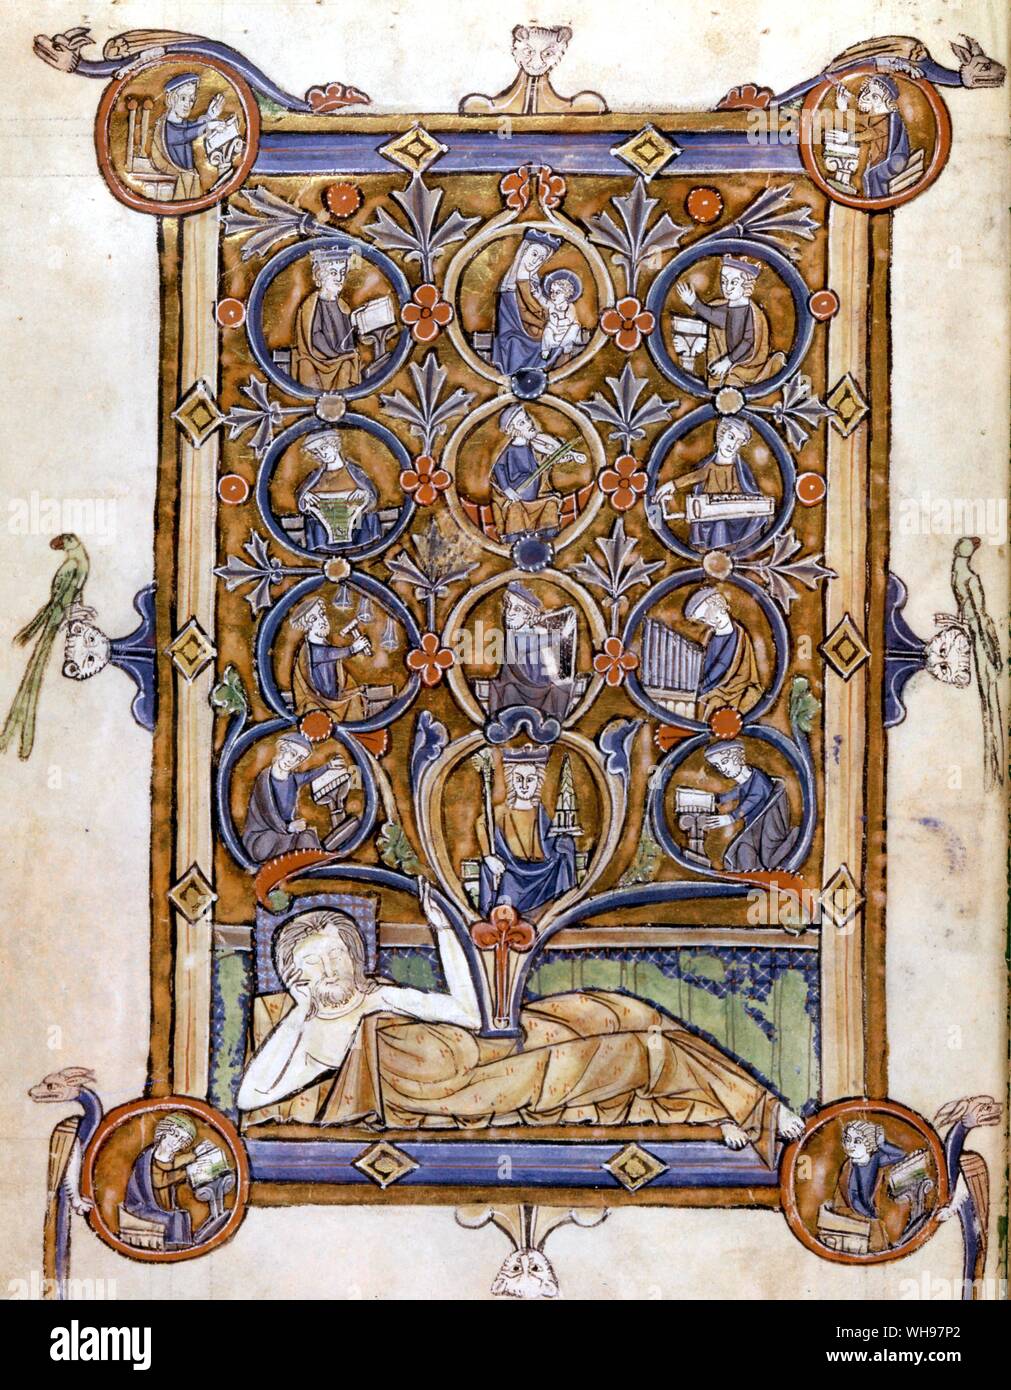 alamy
alamy
alamy
alamy
alamy
alamy
alamy
Image ID: WH97P2
www.alamy.com